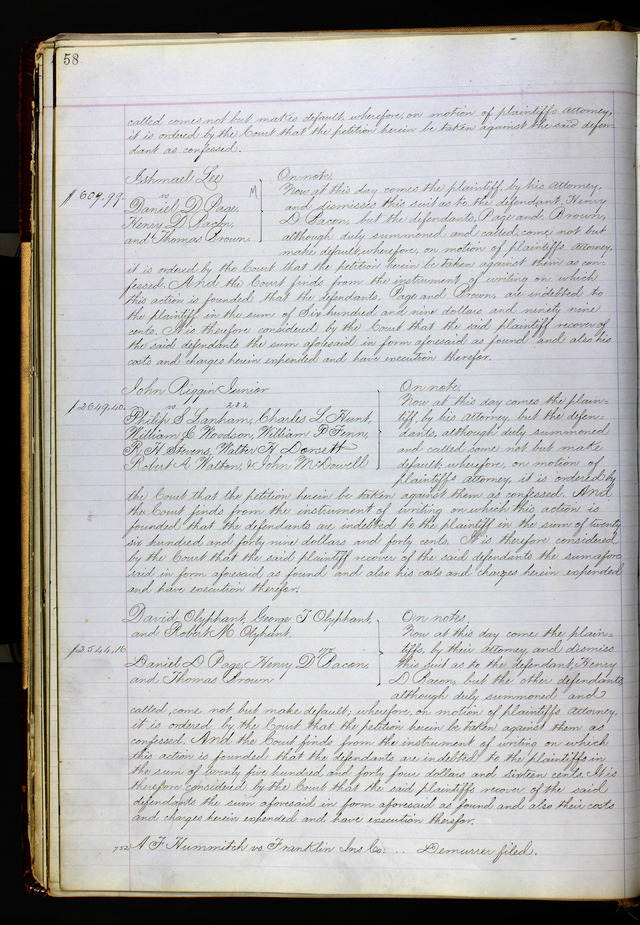 58
called comes not but makes default, wherefore, on motion of plaintiffs attorney,
it is ordered by the Court that the petition herein be taken against the said defen-
dant as confessed.
Ishmael Lee
vs
Daniel D Page,
Henry D Bacon,
and Thomas Brown.
$609.99.
M
On note.
Now at this day comes the plaintiff, by his attorney,
and dismisses this suit as to the defendant, Henry
D Bacon, but the defendants, Page and Brown,
although duly summoned and called come not but
make default, wherefore, on motion of plaintiffs attorney,
it is ordered by the Court that the petition herein be taken against them as con-
fessed. And the Court finds from the instrument of writing on which
this action is founded that the defendants, Page and Brown, are indebted to
the plaintiff in the sum of Six hundred and nine dollars and ninety nine
cents. It is therefore considered by the Court that the said plaintiff recover of
the said defendants the sum aforesaid in form aforesaid as found and also his
costs and charges herein expended and have execution therefor.
John Riggin Junior
vs
Philip S Lanham, Charles L Hunt,
William C Woodson, William P Fenn,
R H Stevens, Walter H Dorsett
Robert A Walton, & John McDowell
$2649.40.
On note.
Now at this day comes the plain-
tiff, by his attorney, but the defen-
dants, although duly summoned
and called come not but make
default, wherefore, on motion of
plaintiffs attorney, it is ordered by
the Court that the petition herein be taken against them as confessed. And
the Court finds from the instrument of writing on which this action is
founded that the defendants are indebted to the plaintiff in the sum of twenty
six hundred and forty nine dollars and forty cents. It is therefore considered
by the Court that the said plaintiff recover of the said defendants the sum afore
said in form aforesaid as found and also his costs and charges herein expended
and have execution therefor.
David Olyphant, George T Olyphant,
and Robert M Olyphant.
vs
Daniel D Page, Henry D Bacon,
and Thomas Brown
$2544.16
On notes.
Now at this day come the plain-
tiffs, by their attorney, and dismiss
this suit as to the defendant, Henry
D Bacon, but the other defendants,
although duly summoned and
called, come not but make default, wherefore, on motion of plaintiffs attorney,
it is ordered by the Court that the petition herein be taken against them as
confessed. And the Court finds from the instrument of writing on which
this action is founded that the defendants are indebted to the plaintiffs in
the sum of twenty five hundred and forty four dollars and sixteen cents. It is
therefore considered by the Court that the said plaintiffs recover of the said
defendants the sum aforesaid in form aforesaid as found and also their costs
and charges herein expended and have execution therefor.
752 A F Hummitch vs Franklin Ins Co. .. Demurrer filed.